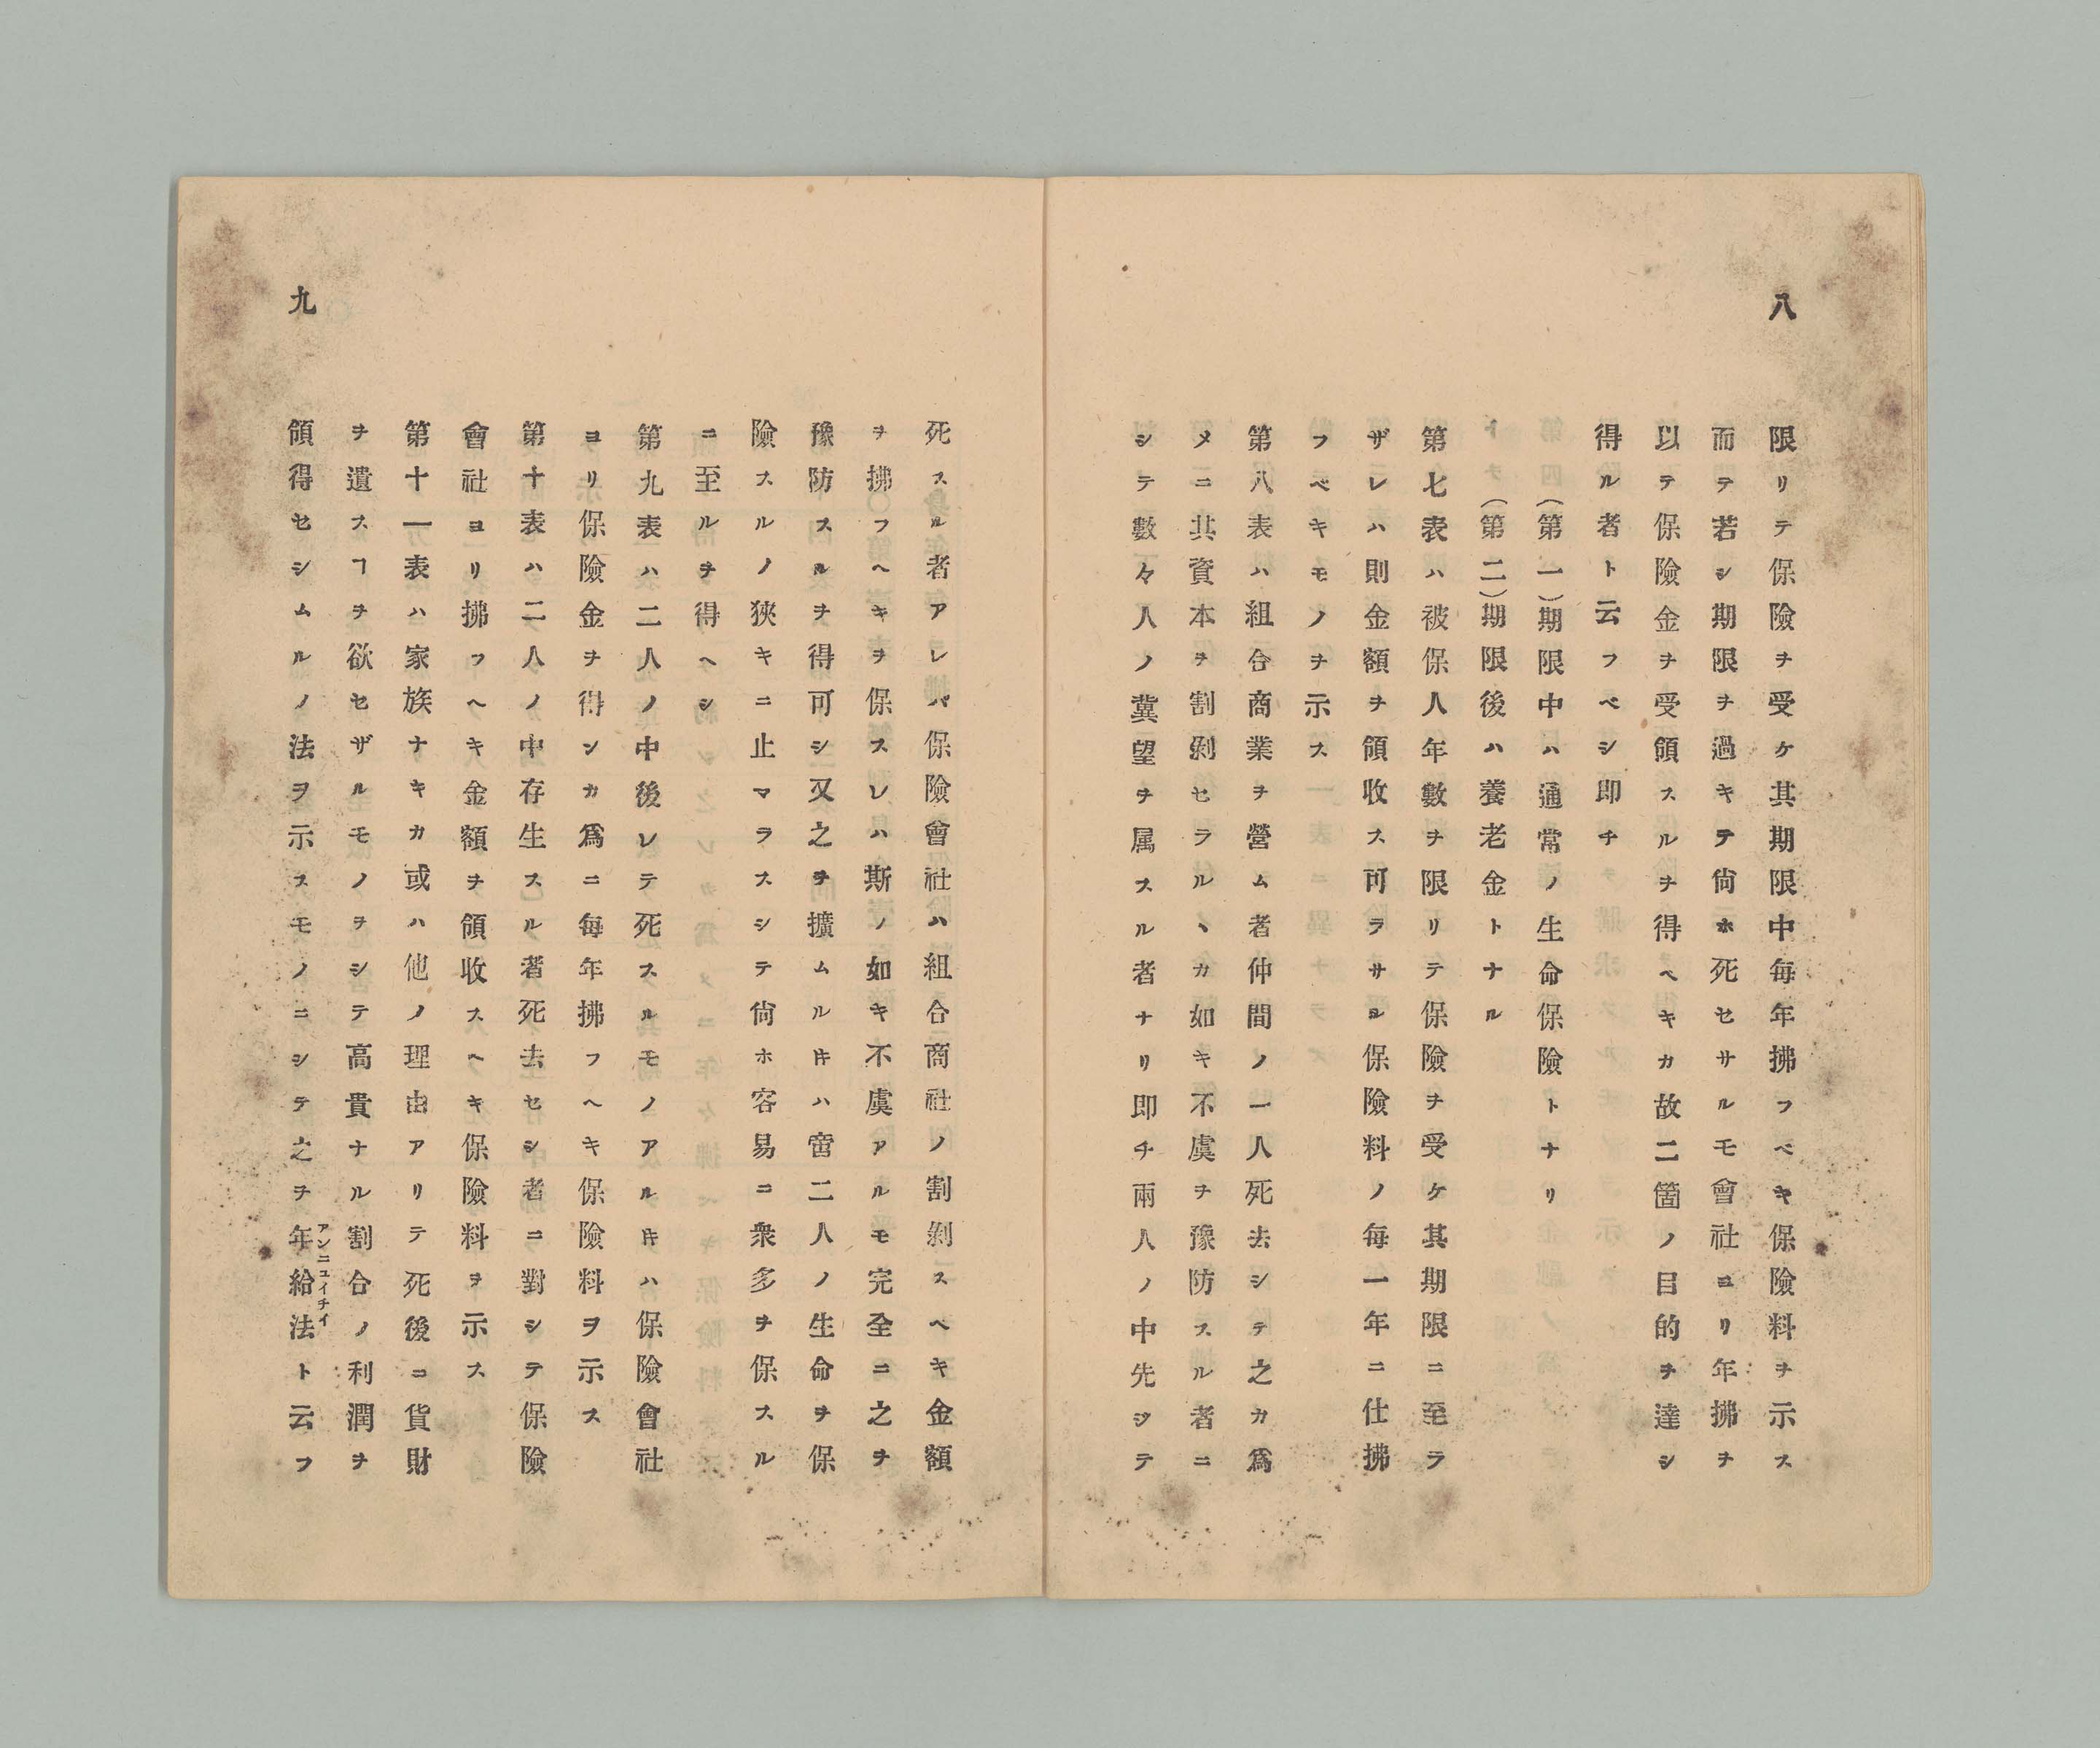 八
限リテ保險ヲ受ケ其期限中每年拂フベキ保險料ヲ示ス
而テ若シ期限ヲ過キテ尙ホ死セサルモ會社ヨリ年拂ヲ
以テ保險金ヲ受領スルヲ得ヘキカ故二箇ノ目的ヲ達シ
得ル者ト云フベシ即チ
（第一）期限中ハ通常ノ生命保險トナリ
（第二）期限後ハ養老金トナル
第七表ハ被保人年數ヲ限リテ保險ヲ受ケ其期限ニ至ラ
ザレハ則金額ヲ領收ス可ラサル保險料ノ每一年ニ仕拂
フベキモノヲ示ス
第八表ハ組合商業ヲ營ム者仲間ノ一人死去シテ之カ爲
メニ其資本ヲ割剝セラルヽカ如キ不虞ヲ豫防スル者ニ
シテ數々人ノ冀望ヲ属スル者ナリ即チ兩人ノ中先ツテ
死スル者アレバ保險會社ハ組合商社ノ割剝スヘキ金額
ヲ拂フヘキヲ保スレハ斯ノ如キ不虞アルモ完全ニ之ヲ
豫防スルヲ得可シ又之ヲ擴ムルㇳキハ啻二人ノ生命ヲ保
險スルノ狹キニ止マラスシテ尙ホ容易ニ衆多ヲ保スル
ニ至ルヲ得ヘシ
第九表ハ二人ノ中後レテ死スルモノアルㇳキハ保險會社
ヨリ保險金ヲ得ンカ爲ニ每年拂フヘキ保險料ヲ示ス
第十表ハ二人ノ中存生スル者死去セシ者ニ對シテ保險
會社ヨリ拂フヘキ金額ヲ領收スヘキ保險料ヲ示ス
第十一表ハ家族ナキカ或ハ他ノ理由アリテ死後ニ貨財
ヲ遺スヿヲ欲セザルモノヲシテ高貴ナル割合ノ利潤ヲ
領得セシムルノ法ヲ示スモノニシテ之ヲ年給法ト云フ
アンニュイチイ
九